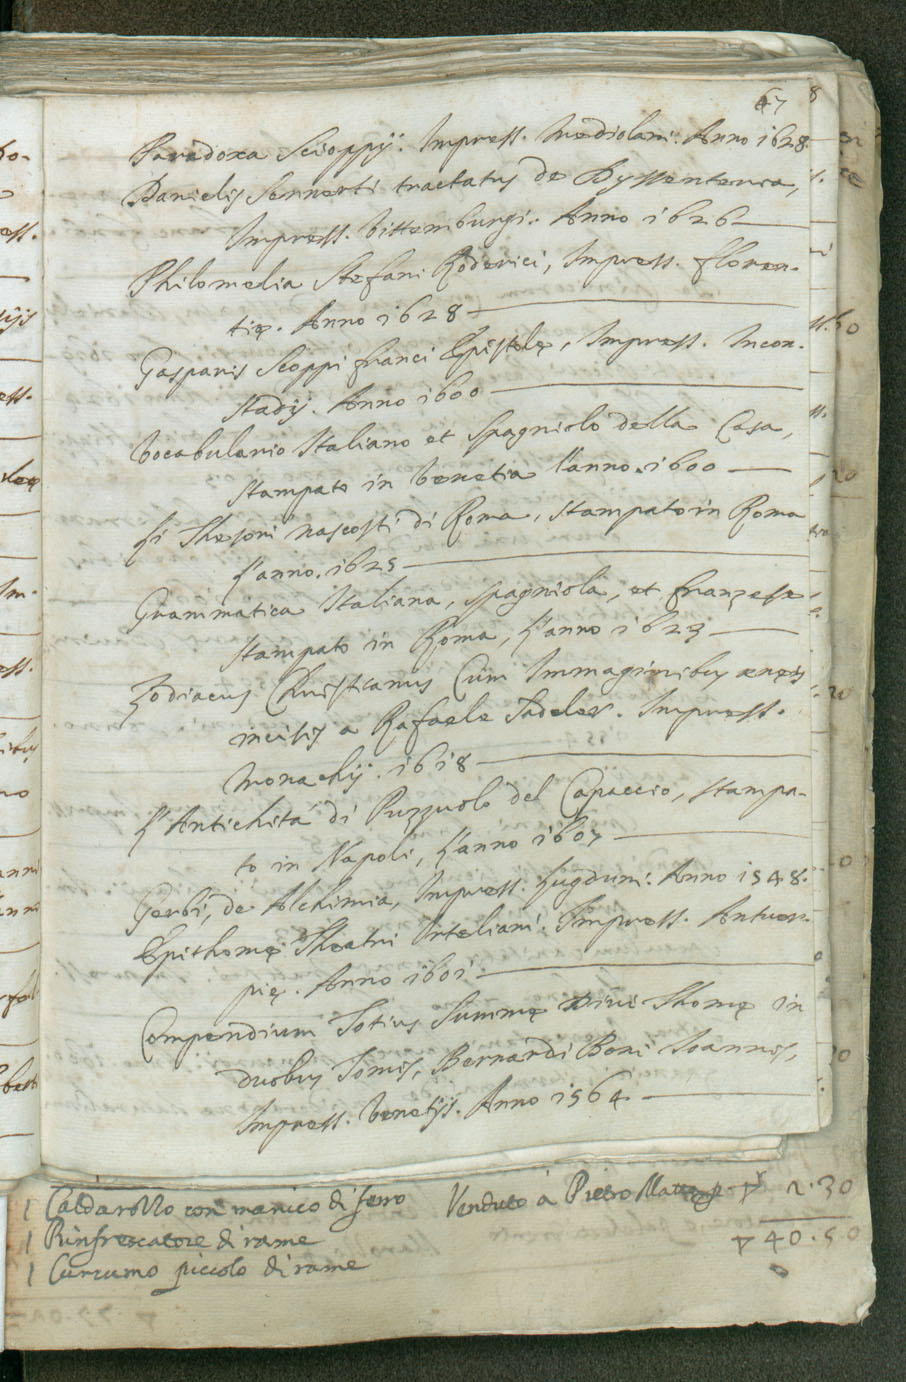 67 8
Paradoxa Scioppij. Impress. Mediolani. Anno 1628.
Danielis Sennerti tractatus de Dyssenteria,
Impress. Vittemburgi. Anno 1626
Philomelia Stefani Roderici, Impress. floren-
tię. Anno 1628
Gasparis Scoppi franci Epistolę, Impress. Incon-
stadij. Anno 1600
Vocabulario Italiano et Spagniolo della Casa,
stampato in Venetia l'anno. 1600
Li Thesori nascosti di Roma, stampato in Roma
l'anno. 1625
Grammatica Italiana, spagniola, et franzese
stampato in Roma, l'anno 1623
Zodiacus Christianus Cum Immaginibus ęneis
incisis a Rafaele Sadeler. Impress.
Monachij. 1618
L'Antichità di Puzzuolo del Capaccio, stampa-
to in Napoli, l'anno 1607
Gerbi, de Alchimia, Impress. Lugduni. Anno 1548.
Epithomę Theatri Orteliani. Impress. Antuer-
pię. Anno 1601
Compendium Totius Summę Divi Thomę in
duobus Tomis, Bernardi Boni Ioannis,
Impress. Venetijs. Anno 1564
1 Caldarozzo con manico di ferro Venduto a Pietro 2.30
1 Rinfrescatore di rame 40.50
1 Cuccumo piccolo di rame